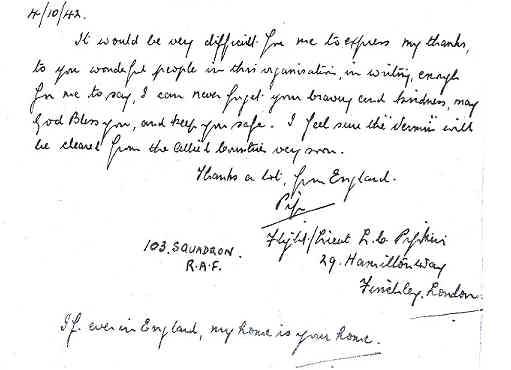 4/10/42.
It would be very difficult for me to express my thanks,
to you wonderful people in this organisation, in writing, enough
for me to say, I can never forget your bravery and kindness, may
God Bless you, and keep you safe. I feel sure the "Vermin" will
be cleared from the Allied Countries very soon.
Thanks a lot, from England.
Pip
Flight/Lieut L. C. Pipkin
29. Hamilton Way
Finchley. London.
103. SQUADRON.
R.A.F.
If ever in England, my home is your home.